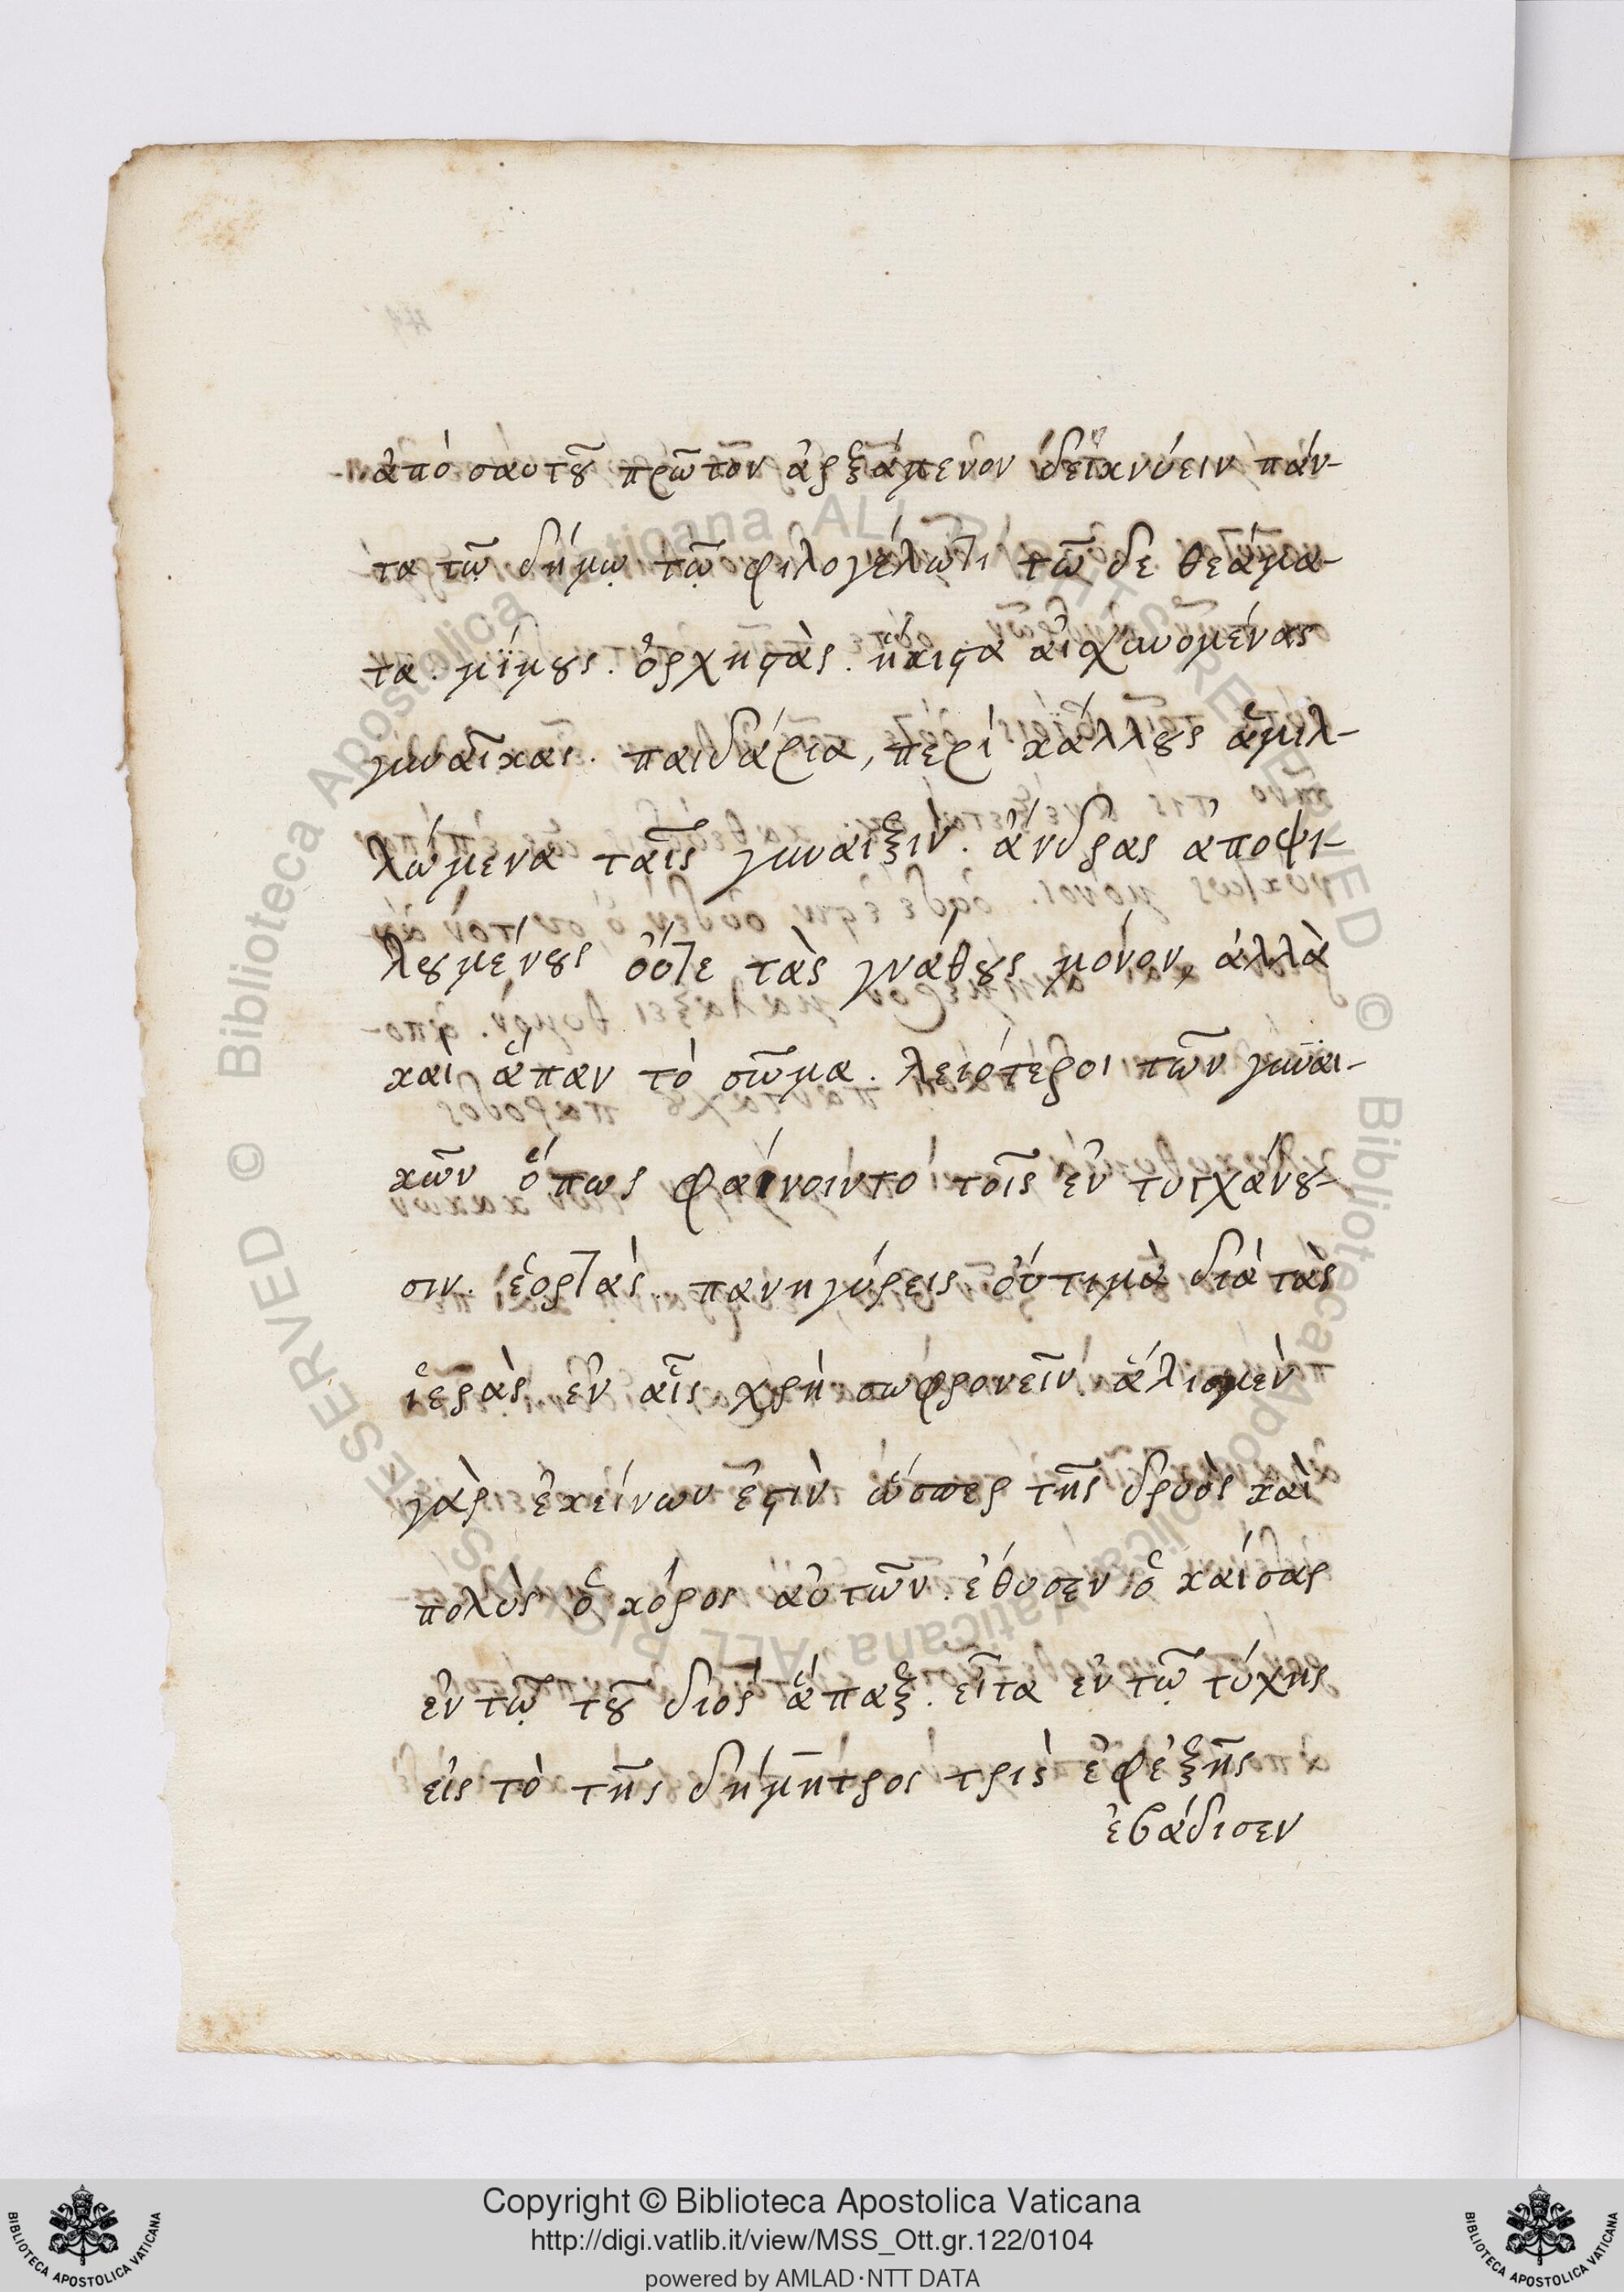 ἀπὸ σαυτοῦ πρῶτον ἀρξάμενον δεικνύειν πάν-
τα τῷ δήμῳ τῷ φιλογέλωτι τῶ δε θεάμα-
τα. μίμους. ὀρχηστὰς. ἥκιστα αἰσχυνομένας
γυναῖκας. παιδάρια, περὶ κάλλους ἁμιλ-
λώμενα ταῖς γυναιξὶν. ἄνδρας ἀποψι-
λουμένους οὔτε τὰς γνάθους μόνον, ἀλλὰ
καὶ ἅπαν τὸ σῶμα. λειότεροι τῶν γυναι-
κῶν ὅπως φαίνοιντο τοῖς ἐντυγχάνου-
σιν. ἑορτὰς. πανηγύρεις οὔτιμὰ διὰ τὰς
ἱερὰς ἐν αἷς χρὴ σωφρονεῖν. ἅλις μὲν
γὰρ ἐκείνων ἐστὶν ὥσπερ τῆς δρυὸς καὶ
πολὺς ὁ κόρος αὐτῶν. ἔθυσεν ὁ καίσαρ
ἐν τῷ τοῦ διὸς ἅπαξ. εἶτα ἐν τῷ τύχης
εἰς τὸ τῆς δήμητρος τρὶς ἐφεξῆς
ἐβάδισεν
Copyright © Biblioteca Apostolica Vaticana
http://digi.vatlib.it/view/MSS_Ott.gr.122/0104
powered by AMLAD·NTT DATA
BIBLIOTECA APOSTOLICA VATICANA
BIBLIOTECA APOSTOLICA VATICANA